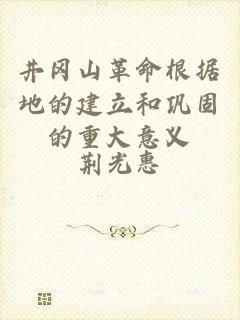 井冈山革命根据
地的建立和巩固
的重大意义
荆光惠